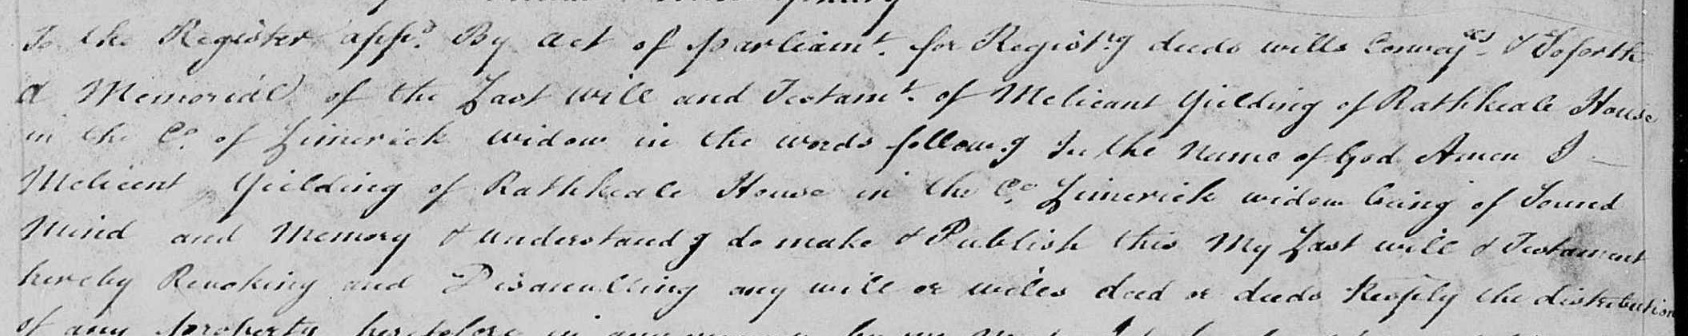 To the Register appd. By act of parliamt. for Registrg deeds wills Conveyces & Soforth
A Memorial of the Last will and Testamt. of Melicent Yielding of Rathkeale House
in the Co. of Limerick widow in the words followg In the Name of God Amen I
Melicent Yielding of Rathkeale House in the Co. Limerick widow being of Sound
Mind and Memory & understandg do make & Publish this My Last will & Testament
hereby Revoking and Disanulling any will or wills deed or deeds the distribution
of any property heretofore in any